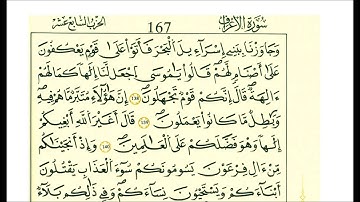 سُورَةُ الأَعْرَافِ 167 الحِزْبُ السَّابِعَ عَشَرَ
وَجَٰوَزْنَا بِبَنِے إِسْرَآءِيلَ اَ۬لْبَحْرَ فَأَتَوْاْ عَلَىٰ قَوْمٖ يَعْكُفُونَ
عَلَىٰٓ أَصْنَامٖ لَّهُمْۖ قَالُواْ يَٰمُوسَى اَ۪جْعَل لَّنَآ إِلَٰهاٗ كَمَا لَهُمُۥٓ
ءَالِهَةٞۖ قَالَ إِنَّكُمْ قَوْمٞ تَجْهَلُونَۖ 138 إِنَّ هَٰٓؤُلَآءِ مُتَبَّرٞ مَّا هُمْ فِيهِ
وَبَٰطِلٞ مَّا كَانُواْ يَعْمَلُونَۖ 139 قَالَ أَغَيْرَ اَ۬للَّهِ أَبْغِيكُمُۥٓ
إِلَٰهاٗ وَهُوَ فَضَّلَكُمْ عَلَى اَ۬لْعَٰلَمِينَۖ 140 وَإِذَ اَنجَيْنَٰكُم
مِّنَ اٰلِ فِرْعَوْنَ يَسُومُونَكُمْ سُوٓءَ اَ۬لْعَذَابِ يَقْتُلُونَ
أَبْنَآءَكُمْ وَيَسْتَحْيُونَ نِسَآءَكُمْۖ وَفِے ذَٰلِكُم بَلَآءٞ